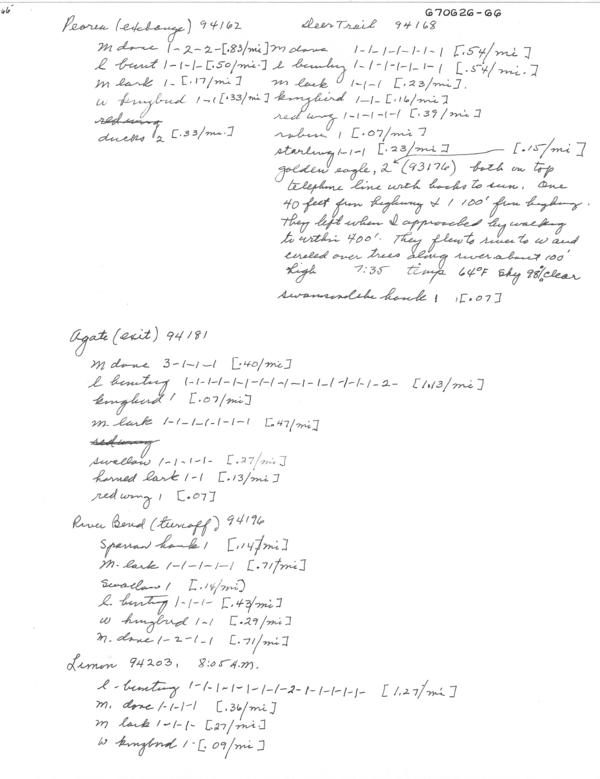 66
G70626-GG
Peorea (exchange) 94162
M dove 1-2-2-[.83/mi]
l bunt 1-1-1-[.50/mi.]
M lark 1-[.17/mi]
w kingbird 1-1[.33/mi]
redwing
ducks 2 [.33/mi.]
Deer Trail 94168
m dove 1-1-1-1-1-1-1 [.54/mi]
l bunting 1-1-1-1-1-1-1 [.54/mi.]
m lark 1-1-1 [.23/mi].
kingbird 1-1- [.16/mi]
red wing 1-1-1-1-1 [.39/mi]
robin 1 [.07/mi]
starling 1-1-1 [.23/mi] [.15/mi]
golden eagle, 2 (93176) both on top
telephone line with backs to sun. One
40 feet from highway & 1 100' from highway.
They left when I approached by walking
to within 400'. They flew to river to w and
circled over trees along river about 100'
high 7:35 temp 64°F Sky 98% clear
swainson like hawk 1 [.07]
Agate (exit) 94181
M dove 3-1-1-1 [.40/mi]
l bunting 1-1-1-1-1-1-1-1-1-1-1-1-1-1-1-2- [1.13/mi]
kingbird 1 [.07/mi]
m. lark 1-1-1-1-1-1-1 [.47/mi]
redwing
swallow 1-1-1-1- [.27/mi]
horned lark 1-1 [.13/mi]
redwing 1 [.07]
River Bend (turnoff) 94196
Sparrow hawk 1 [.14/mi]
M. lark 1-1-1-1-1 [.71/mi]
Swallow 1 [.14/mi)
l. bunting 1-1-1- [.43/mi]
w kingbird 1-1 [.29/mi]
m. dove 1-2-1-1 [.71/mi]
Limon 94203, 8:05 A.M.
l-bunting 1-1-1-1-1-1-1-2-1-1-1-1-1- [1.27/mi]
m. dove 1-1-1-1 [.36/mi]
m lark 1-1-1- [27/mi]
w kingbird 1-[.09/mi]